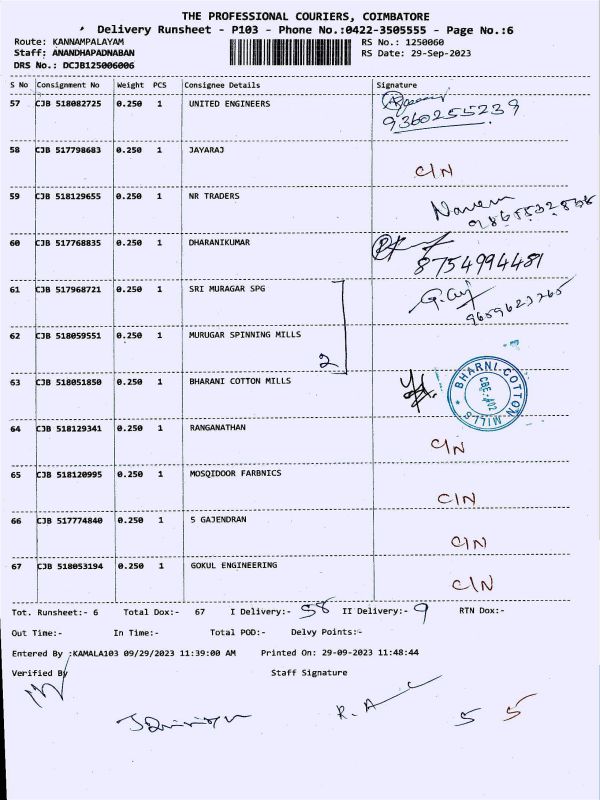 THE PROFESSIONAL COURIERS, COIMBATORE
Delivery Runsheet - P103 - Phone No.:0422-3505555 - Page No.:6
Route: KANNAMPALAYAM RS No.: 1250060
Staff: ANANDHAPADNABAN RS Date: 29-Sep-2023
DRS No.: DCJB125006006
S No Consignment No Weight PCS Consignee Details Signature
57 CJB 518082725 0.250 1 UNITED ENGINEERS
9360255239
58 CJB 517798683 0.250 1 JAYARAJ
C/N
59 CJB 518129655 0.250 1 NR TRADERS
Naveen
60 CJB 517768835 0.250 1 DHARANIKUMAR
8754994481
61 CJB 517968721 0.250 1 SRI MURAGAR SPG
9659623265
62 CJB 518059551 0.250 1 MURUGAR SPINNING MILLS
2
63 CJB 518051850 0.250 1 BHARANI COTTON MILLS
BHARNI COTTON MILLS
CBE-402
64 CJB 518129341 0.250 1 RANGANATHAN
C/N
65 CJB 518120995 0.250 1 MOSQIDOOR FARBNICS
C/N
66 CJB 517774840 0.250 1 S GAJENDRAN
C/N
67 CJB 518053194 0.250 1 GOKUL ENGINEERING
C/N
Tot. Runsheet:- 6 Total Dox:- 67 I Delivery:- 58 II Delivery:- 9 RTN Dox:-
Out Time:- In Time:- Total POD:- Delvy Points:-
Entered By :KAMALA103 09/29/2023 11:39:00 AM Printed On: 29-09-2023 11:48:44
Verified By Staff Signature
5 5